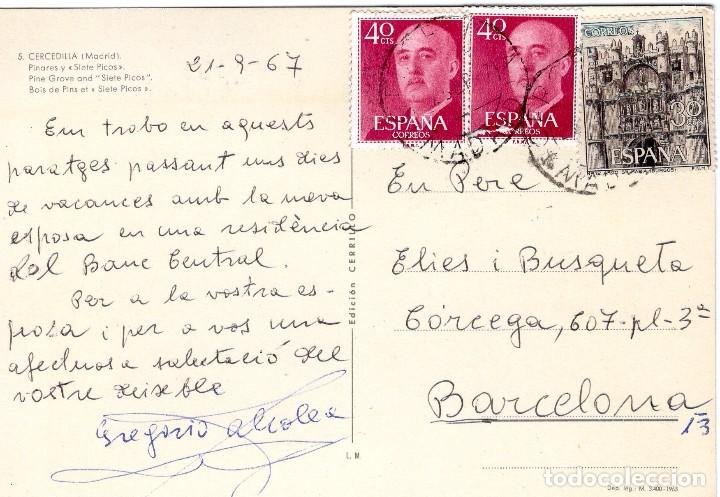 5. CERCEDILLA (Madrid).
Pinares y «Siete Picos».
Pine Grove and "Siete Picos".
Bois de Pins et « Siete Picos ».
21-9-67
Em trobo en aquests
paratges passant uns dies
de vacances amb la meva
esposa en una residència
del Banc Central.
Per a la vostra es-
posa i per a vos una
afectuosa salutació del
vostre deixeble
Gregorio Alcolea
L. M.
Edición CERRILLO
40
CTS
ESPAÑA
CORREOS
40
CTS
ESPAÑA
CORREOS
CORREOS
ESPAÑA
En Pere
Elies i Busqueta
Còrcega, 607-pl-3ª
Barcelona
13
Dep. leg.: M. 3.400-1965
todocoleccion